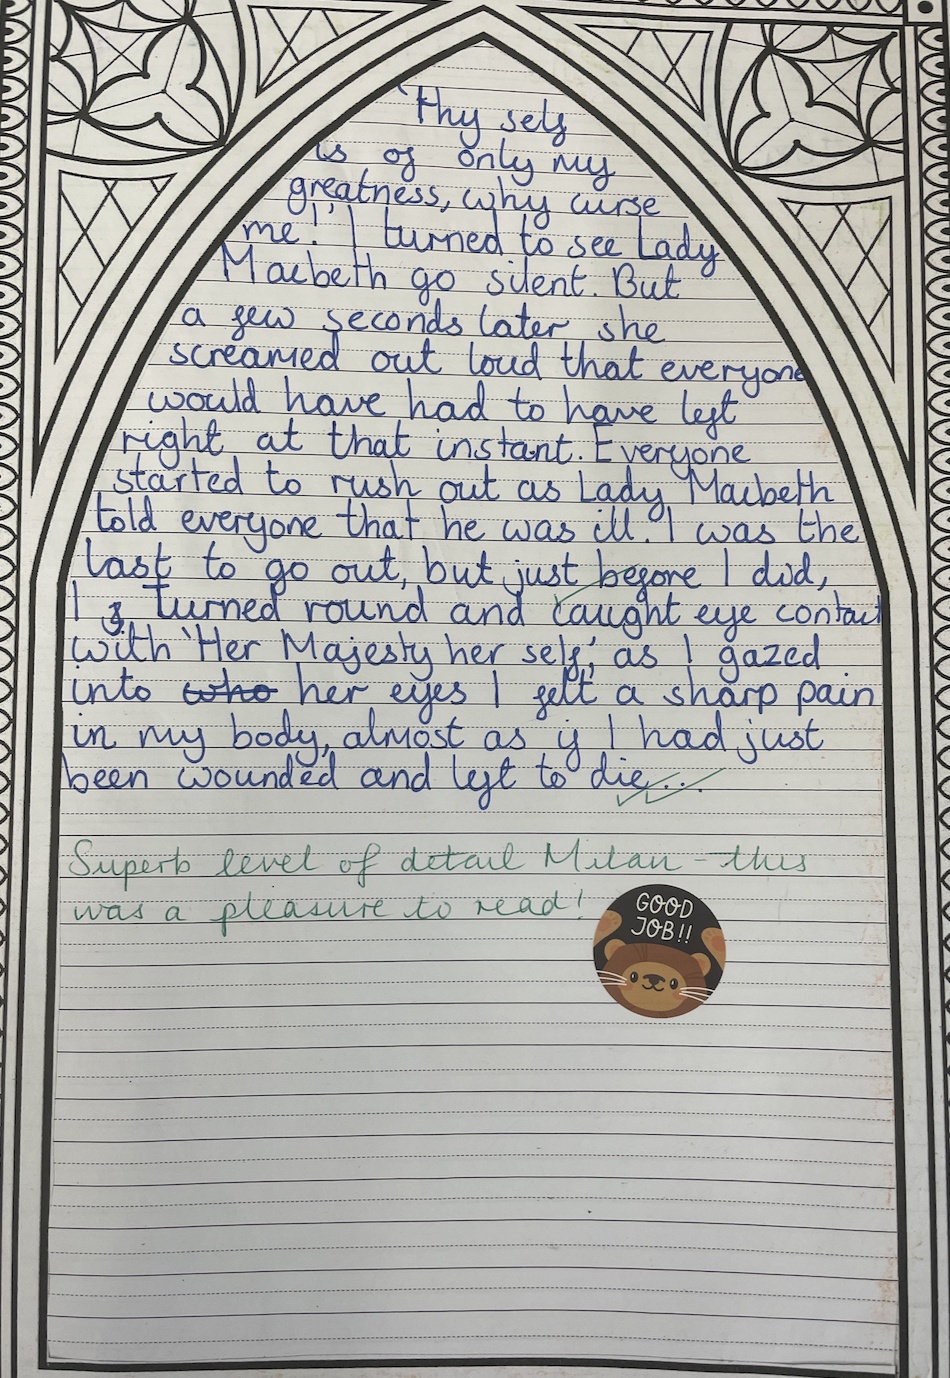 'Thy self
is of only my
greatness, why curse
me!' I turned to see Lady
Macbeth go silent. But
a few seconds later she
screamed out loud that everyone
would have had to have left
right at that instant. Everyone
started to rush out as Lady Macbeth
told everyone that he was ill. I was the
last to go out, but just before I did,
I turned round and caught eye contact
with 'Her Majesty her self,' as I gazed
into who her eyes I felt a sharp pain
in my body, almost as if I had just
been wounded and left to die...
Superb level of detail Milan - this
was a pleasure to read!
GOOD
JOB!!